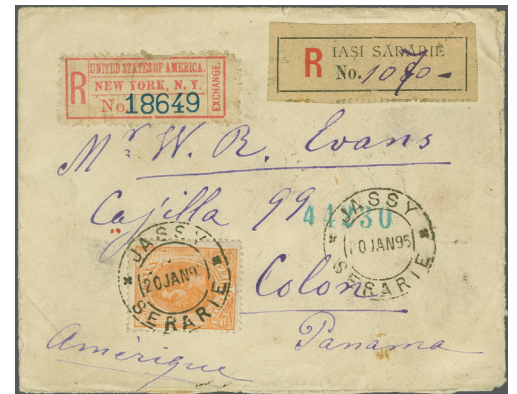 UNITED STATES OF AMERICA.
R NEW YORK, N. Y.
No 18649
EXCHANGE.
R IAȘI SĂRĂRIE
No. 1080-
Mr W. R. Evans
Cajilla 99
44230
JASSY
20 JAN 95
SERARIE
JASSY
20 JAN 9
SERARIE
Colon
Panama
Amérique